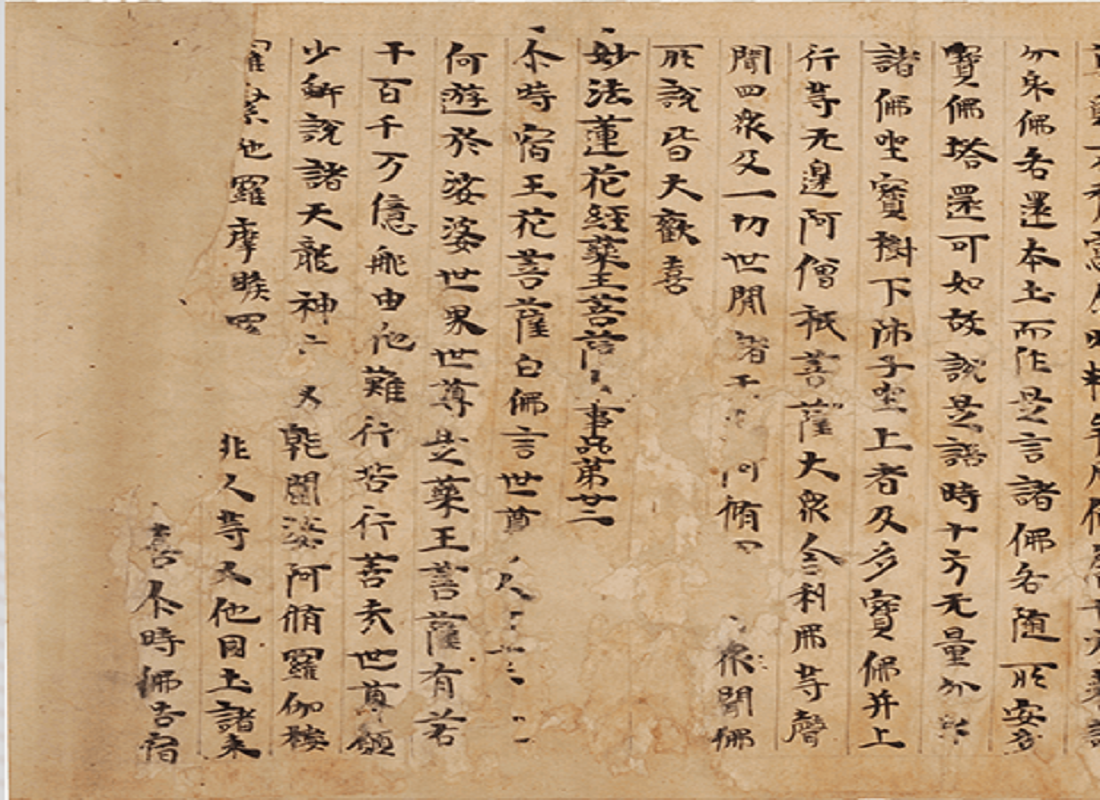 分身佛各還本土而作是言諸佛各随所安多
寶佛塔還可如故說是語時十方无量分身
諸佛坐寶樹下師子坐上者及多寶佛并上
行等无邊阿僧祇菩薩大衆舍利弗等聲
聞四衆及一切世間 阿脩 衆聞佛
所說皆大歡喜
妙法蓮花經藥王菩薩 事品第廿二
尒時宿王花菩薩白佛言世尊
何遊於娑婆世界世尊是藥王菩薩有若
干百千万億那由他難行苦行善哉世尊願
少解說諸天龍神 叉乾闥婆阿脩羅伽楼
羅緊他羅摩睺羅 非人等又他國土諸來
喜尒時佛告宿